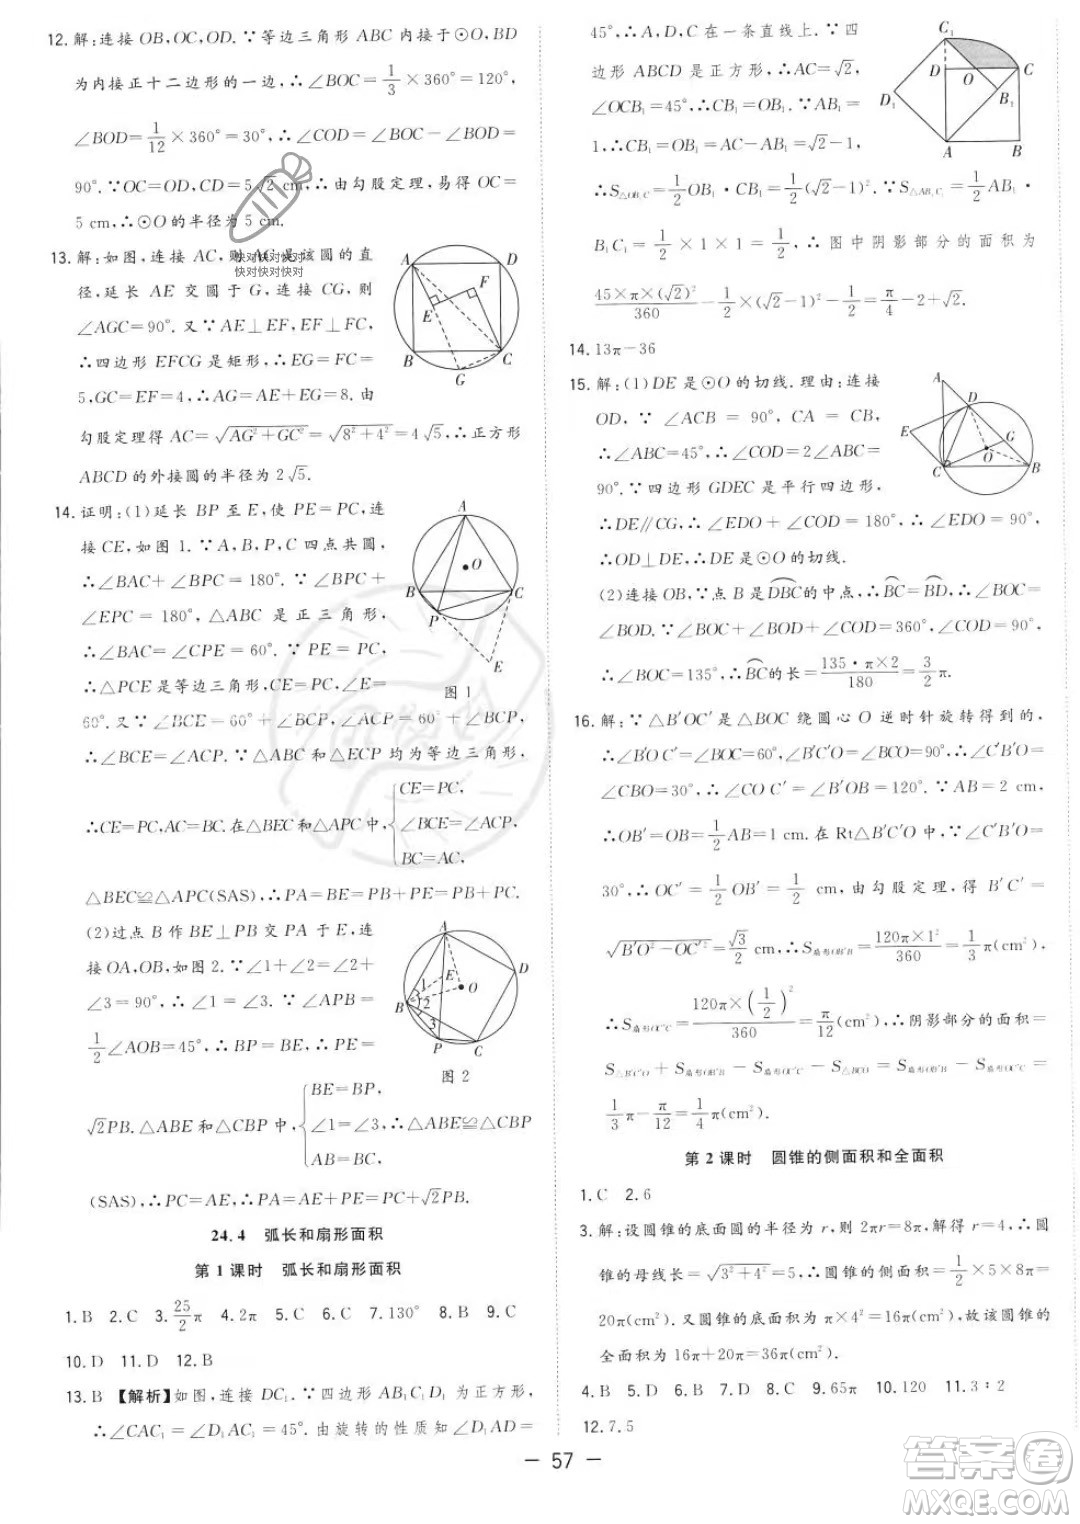 12. 解:连接 OB,OC,OD.∵等边三角形 ABC 内接于⊙O,BD
为内接正十二边形的一边,∴∠BOC=1/3×360°=120°,
∠BOD=1/12×360°=30°,∴∠COD=∠BOC-∠BOD=
90°.∵OC=OD,CD=5√2 cm,∴由勾股定理,易得 OC=
5 cm,∴⊙O的半径为 5 cm.
13. 解:如图,连接 AC,则 AC 是该圆的直
径,延长 AE 交圆于 G,连接 CG,则
∠AGC=90°.又∵AE⊥EF,EF⊥FC,
∴四边形 EFCG 是矩形,∴EG=FC=
5,GC=EF=4,∴AG=AE+EG=8.由
勾股定理得 AC=√(AG²+GC²)=√(8²+4²)=4√5,∴正方形
ABCD 的外接圆的半径为 2√5.
14. 证明:(1)延长 BP 至 E,使 PE=PC,连
接 CE,如图 1.∵A,B,P,C 四点共圆,
∴∠BAC+∠BPC=180°.∵∠BPC+
∠EPC=180°,△ABC 是正三角形,
∴∠BAC=∠CPE=60°.∵PE=PC,
∴△PCE是等边三角形,CE=PC,∠E=
60°.又∵∠BCE=60°+∠BCP,∠ACP=60°+∠BCP,
∴∠BCE=∠ACP.∵△ABC 和△ECP 均为等边三角形,
∴CE=PC,AC=BC.在△BEC和△APC中,{CE=PC, ∠BCE=∠ACP, BC=AC,
△BEC≌△APC(SAS),∴PA=BE=PB+PE=PB+PC.
(2)过点 B 作 BE⊥PB 交 PA 于 E,连
接OA,OB,如图 2.∵∠1+∠2=∠2+
∠3=90°,∴∠1=∠3.∵∠APB=
1/2∠AOB=45°,∴BP=BE,∴PE=
√2PB.△ABE 和△CBP 中,{BE=BP, ∠1=∠3, AB=BC,∴△ABE≌△CBP
(SAS),∴PC=AE,∴PA=AE+PE=PC+√2PB.
图 1
图 2
24.4 弧长和扇形面积
第 1 课时 弧长和扇形面积
1.B 2.C 3.25/2π 4.2π 5.C 6.C 7.130° 8.2 9.C
10.D 11.D 12.B
13.B 【解析】如图,连接 DC₁.∵四边形 AB₁C₁D₁ 为正方形,
∴∠CAC₁=∠DC₁A=45°.由旋转的性质知∠D₁AD=
45°,∴A,D,C₁ 在一条直线上.∵四
边形 ABCD 是正方形,∴AC=√2,
∠OCB₁=45°,∴CB₁=OB₁.∵AB₁=
1,∴CB₁=OB₁=AC-AB₁=√2-1,
∴S△OB₁C=1/2OB₁·CB₁=1/2(√2-1)².∵S△AB₁C₁=1/2AB₁·
B₁C₁=1/2×1×1=1/2,∴图中阴影部分的面积为
45×π×(√2)²/360-1/2×(√2-1)²-1/2=π/4-2+√2.
14. 13π-36
15. 解:(1)DE 是⊙O 的切线.理由:连接
OD,∵∠ACB=90°,CA=CB,
∴∠ABC=45°,∴∠COD=2∠ABC=
90°.∵四边形 GDEC 是平行四边形,
∴DE∥CG,∴∠EDO+∠COD=180°,∴∠EDO=90°,
∴OD⊥DE,∴DE是⊙O的切线.
(2)连接OB,∵点 B 是DBC的中点,∴BC=BD,∴∠BOC=
∠BOD.∵∠BOC+∠BOD+∠COD=360°,∠COD=90°,
∴∠BOC=135°,∴BC的长=135·π×2/180=3/2π.
16. 解:∵△B′OC′是△BOC 绕圆心 O 逆时针旋转得到的,
∴∠B′OC′=∠BOC=60°,∠B′C′O=∠BCO=90°,∴∠C′B′O=
∠CBO=30°,∴∠COC′=∠B′OB=120°.∵AB=2 cm,
∴OB′=OB=1/2AB=1 cm.在 Rt△B′C′O 中,∵∠C′B′O=
30°,∴OC′=1/2OB′=1/2 cm,由勾股定理,得 B′C′=
√(B′O²-OC′²)=√3/2 cm,∴S扇形OB′B=120π×1²/360=1/3π(cm²),
∴S扇形OC′C=120π×(1/2)²/360=π/12(cm²),∴阴影部分的面积=
S△B′C′O+S扇形OB′B-S扇形OC′C-S△BCO=S扇形OB′B-S扇形OC′C=
1/3π-π/12=1/4π(cm²).
第 2 课时 圆锥的侧面积和全面积
1.C 2.6
3. 解:设圆锥的底面圆的半径为 r,则 2πr=8π,解得 r=4,∴圆
锥的母线长=√(3²+4²)=5,∴圆锥的侧面积=1/2×5×8π=
20π(cm²).又圆锥的底面积为 π×4²=16π(cm²),故该圆锥的
全面积为 16π+20π=36π(cm²).
4.B 5.D 6.B 7.D 8.C 9.65π 10.120 11.3∶2
12.7.5
- 57 -
快对快对快对
快对快对快对
答案卷
MXQE.COM